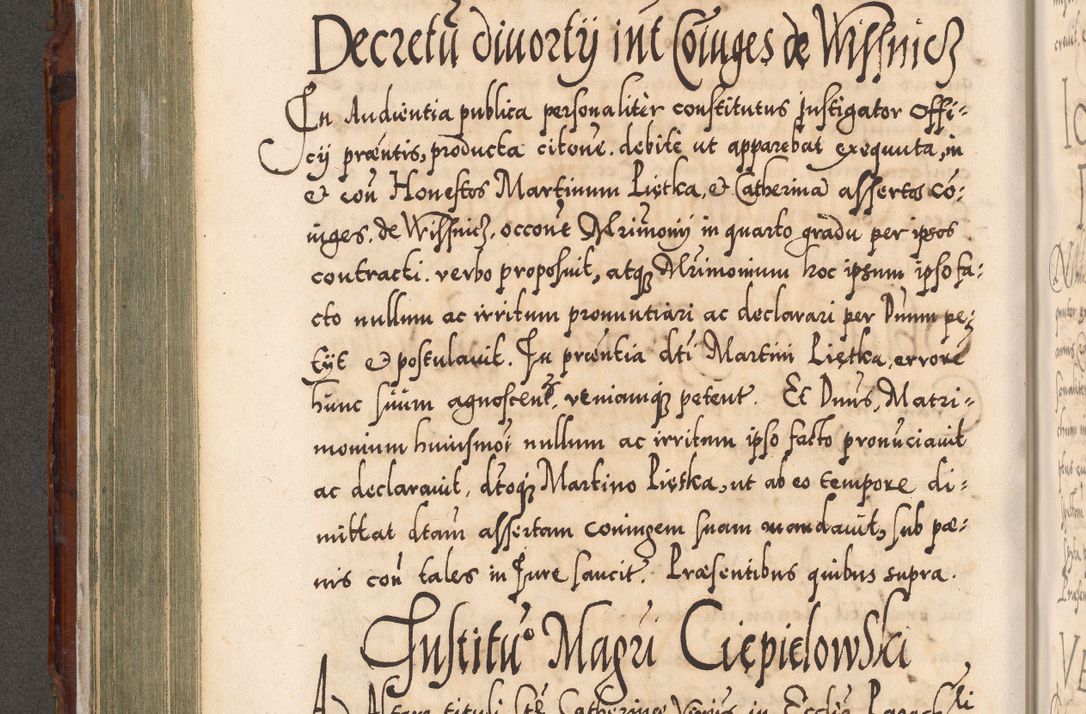 Decretũ diuortÿ int Coiuges de Wissnicz
In Audientia publica personalitèr constitutus Instigator offi-
cÿ præntis, producta citone. debite ut apparebat exequuta, in
& coñ Honestos Martinum Piętka, & Catherinã assertos cõ-
iuges. de Wissnicz, occone Mrimonÿ in quarto gradu per ipsos
contracti. verbo proposuit, atq Mrimonium hoc ipsum ipso fa-
cto nullum ac irritum pronuntiari ac declarari per Dnum pe-
tÿt & postulavit. In præntia dti Martini Piętka, errorẽ
hunc suum agnoscents, veniamq petent. Et Dnus, Matri-
monium huiusmoi nullum ac irritum ipso facto pronũciauit
ac declarauit, dtoq Martino Piętka, ut ab eo tempore di-
mittat dtam assertam coniugem suam mandauit, sub pæ-
nis coñ tales in Jure sancit. Præsentibus quibus supra.
Institũo Magri Ciepielowski
Ad Altare tituli Sctæ Catherinæ in Ecclia Paroch